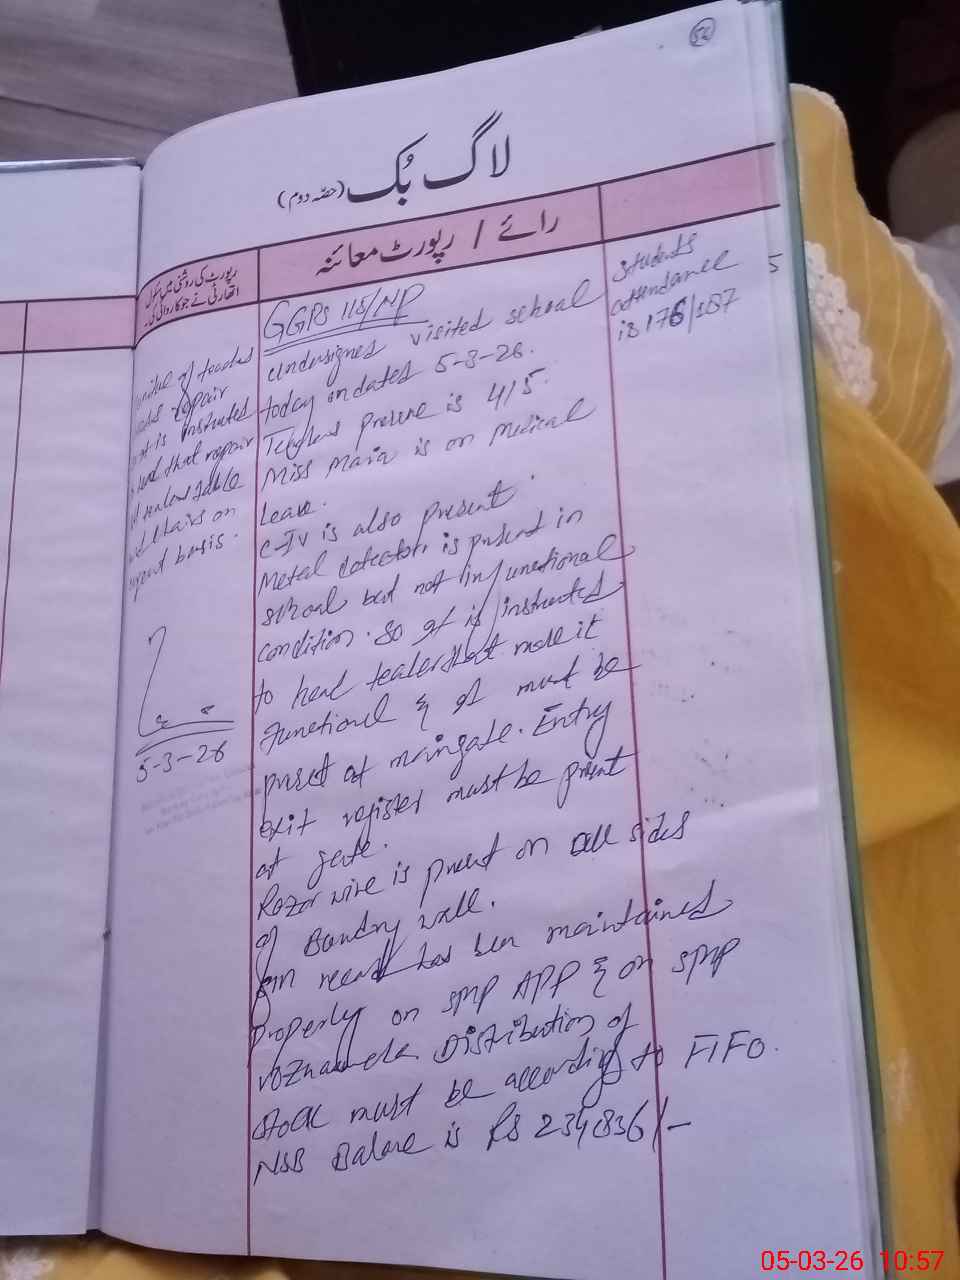 54
لاگ بُک (حصّہ دوم)
رائے / رپورٹ معائنہ
رپورٹ کی روشنی میں سکول
اتھارٹی نے جو کاروائی کی۔
students
attendance
is 176/187
5
GGPS 115/NP
undersigned visited school
today on dated 5-3-26.
Teachers present is 4/5.
Miss Maria is on Medical
Leave.
C-IV is also present.
Metal detector is present in
school but not in functional
condition. So it is instructed
to head teacher that make it
functional & it must be
present at maingate. Entry
exit register must be present
at gate.
Razor wire is present on all sides
of Boundry wall.
record has been maintained
properly on SMP APP & on SMP
roznamcha. Distribution of
stock must be according to FIFO.
NSB Balance is Rs 234836/-
of teacher
repair
is instructed
that repair
table
chairs on
basis.
5-3-26
05-03-26 10:57